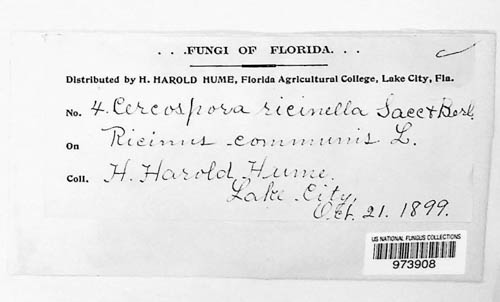 . . .FUNGI OF FLORIDA. . .
Distributed by H. HAROLD HUME, Florida Agricultural College, Lake City, Fla.
No. 4. Cercospora ricinella Sacc & Berl.
On Ricinus communis L.
Coll. H. Harold Hume.
Lake City,
Oct. 21. 1899.
US NATIONAL FUNGUS COLLECTIONS
973908